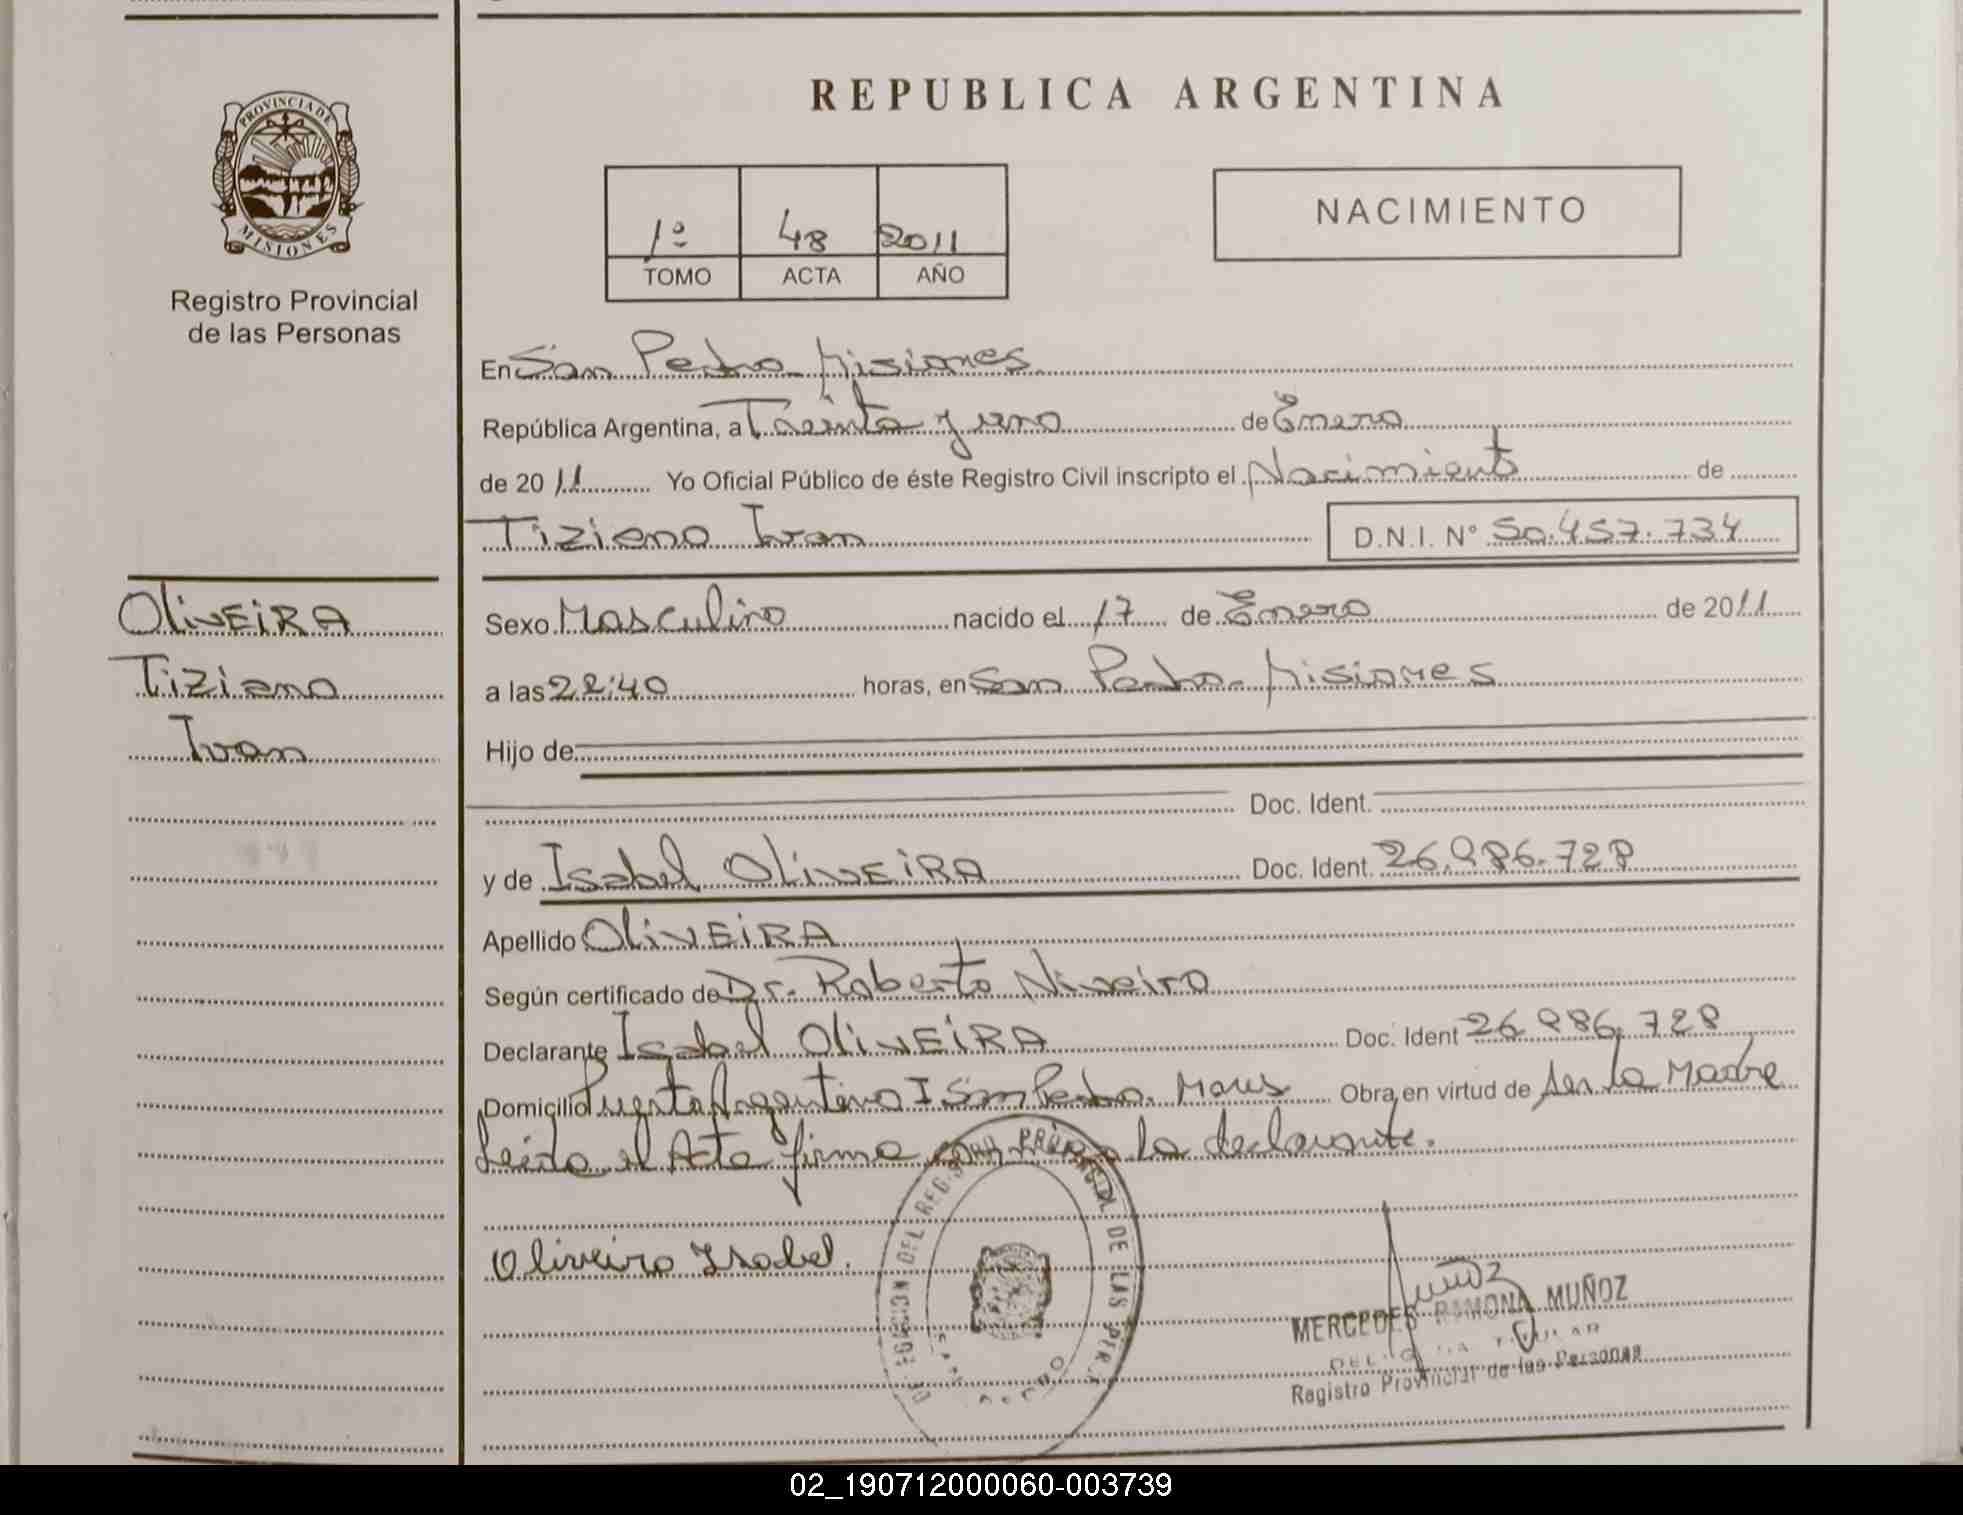 REPUBLICA ARGENTINA
PROVINCIA DE
MISIONES
Registro Provincial
de las Personas
1º 48 2011
TOMO ACTA AÑO
NACIMIENTO
En San Pedro - Misiones
República Argentina, a Treinta y uno de Enero
de 2011 Yo Oficial Público de éste Registro Civil inscripto el Nacimiento de
Tiziano Ivan D.N.I. Nº 50.457.734
OLIVEIRA
Tiziano
Ivan
Sexo Masculino nacido el 17 de Enero de 2011
a las 22:40 horas, en San Pedro - Misiones
Hijo de
Doc. Ident.
y de Isabel OLIVEIRA Doc. Ident. 26.986.728
Apellido OLIVEIRA
Según certificado de Dr. Roberto Niveiro
Declarante Isabel OLIVEIRA Doc. Ident 26.986.728
Domicilio Puerto Argentino I San Pedro. Mnes Obra en virtud de ser la Madre
Leida el Acta firma la declarante.
Oliveira Isabel.
DIRECCION DEL REGISTRO PROVINCIAL DE LAS PERS.
MERCEDES RAMONA MUÑOZ
DELEGADA TITULAR
Registro Provincial de las Personas
02_190712000060-003739